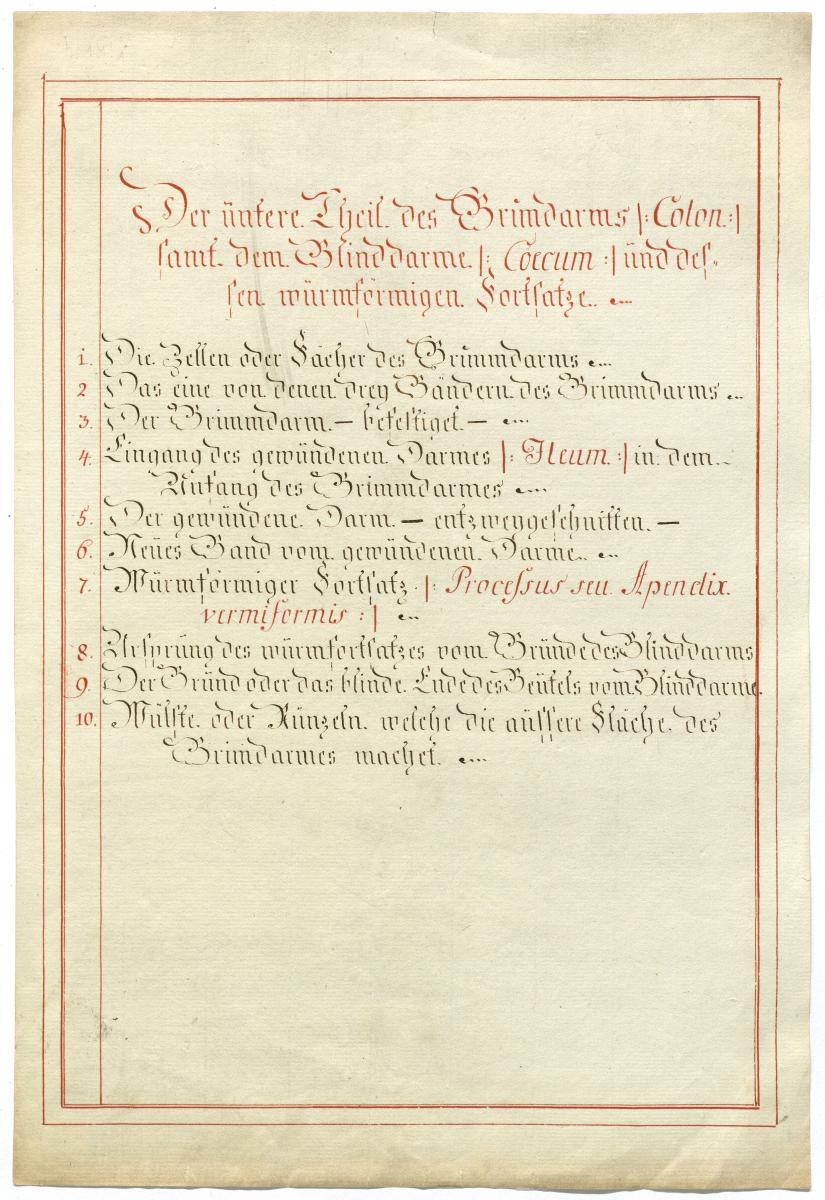 Der üntere Theil des Grimdarms |: Colon :|
samt dem Blinddarme |: Coecum :| ünd des-
sen würmförmigen Fortsatze.
1. Die Zellen oder Fächer des Grimmdarms
2 Das eine von denen drey Bändern des Grimmdarms
3. Der Grimmdarm — befestiget —
4. Eingang des gewündenen Darmes |: Ileum :| in dem
Anfang des Grimmdarmes
5. Der gewündene Darm — entzweygeschnitten. —
6. Neües Band vom gewündenen Darme.
7. Würmförmiger Fortsatz |: Processus seu Apendix
vermiformis :|
8. Ursprüng des würmfortsatzes vom Gründe des Blinddarms
9. Der Gründ oder das blinde Ende des Beütels vom Blinddarme.
10. Wülste oder Rünzeln welche die aüssere Fläche des
Grimdarmes machet.